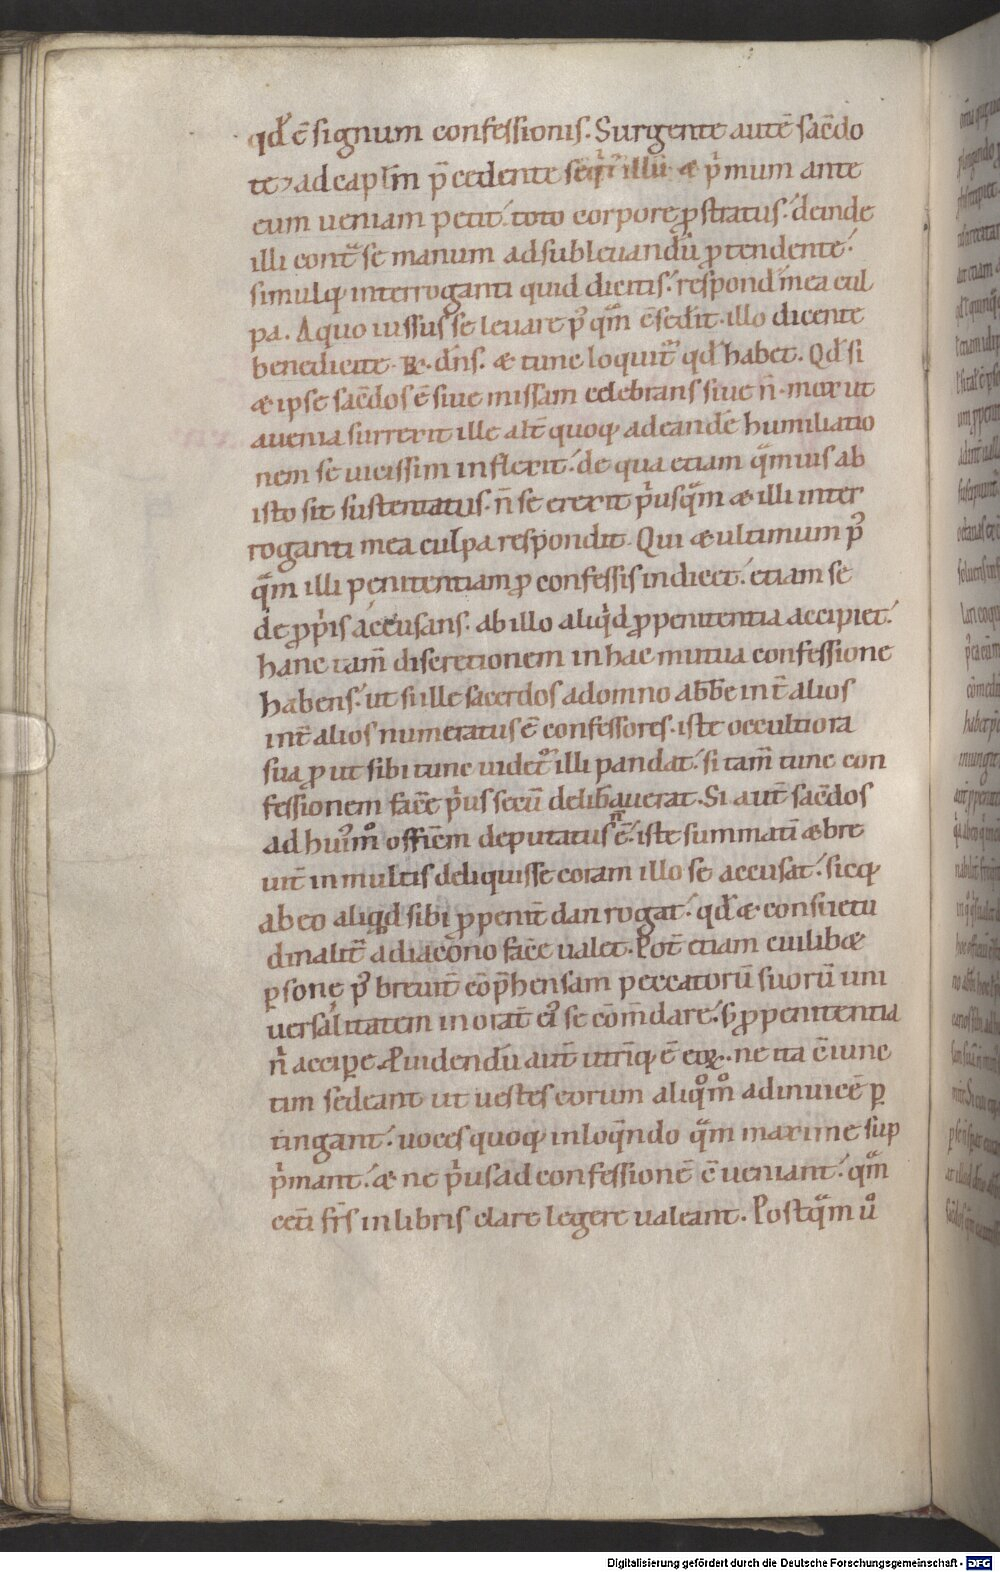 qd̄ ē signum confessionis. Surgente autē sac̄do
te ad capl̄m p̄cedente seq̇t᷑ illū. & p̍mum ante
eum ueniam petit. toto corpore ꝓstratus. deinde
illi cont̄ se manum ad subleuandū ꝓtendente.
simulq; interroganti quid dicitis. respond& mea cul
pa. A quo iussus se leuare p᷒ q̄m c̄sed̄it. illo dicente
benedicite. R̄. dn̄s. & tunc loquit᷑ qd̄ habet. Qd̄ si
& ipse sac̄dos ē siue missam celebrans siue n̄. mox ut
a uenia surrexit ille alt̄ quoq; ad eande humiliatio
nem se uicissim inflexit. de qua etiam q̄mius ab
isto sit sustentatus. n̄ se erexit p̍usq̄m & illi inter
roganti mea culpa respondit. Qui & ultimum p᷒
q̄m illi penitentiam ꝓ confessis indicet. etiam se
de ꝓp̍is accusans. ab illo aliq̍d ꝓ penitentia accipiet.
hanc tam̄ discretionem in hac mutua confessione
habens. ut si ille sacerdos a domno abb̄e int̄ alios
int̄ alios numeratus ē confessores. iste occultiora
sua ꝓut sibi tunc uidet᷑ illi pandat. si tam̄ tunc con
fessionem fac̄e p̍us secū delib̄auerat. Si aut̄ sac̄dos
ad hui᷒m̊ offic̄m deputatus n̄ ē. iste summatī & bre
uit̄ in multis deliquisse coram illo se accusat. sicq;
ab eo aliq̍d sibi ꝓ penit̄ dari rogat. qd̄ & consuetu
dinalit̄ a diacono fac̄e ualet. Pot̄ etiam cuilib&
ꝑsone p᷒ breuit̄ cōp̄hensam peccatorū suorū uni
uersalitatem in orat̄ ei᷒ se cōm̄dare. s; ꝓ penitentia
n̄ accipe. Puidendū aut̄ utriq; ē eoꝝ. ne ita c̄iunc
tim sedeant ut uestes eorum aliq̊m̊ adinuicē ꝑ
tingant. uoces quoq; in loq̄ndo q̄m maxime sup
p̍mant. & ne p̍us ad confessionē c̄ueniant. q̄m
cet̄i fr̄s in libris clare legere ualeant. Postq̄m u̇̊
Digitalisierung gefördert durch die Deutsche Forschungsgemeinschaft - DFG